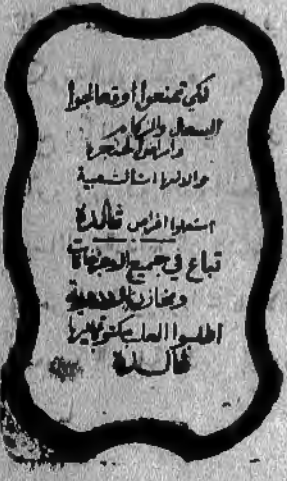 لكي تمنعوا أو تعالجوا
السعال والزكام
وأمراض الحنجرة
والالتهابات الشعبية
استعملوا اقراص فالدة
تباع في جميع الاجزاخانات
ومخازن الادوية
اطلبوا العلب مكتوب عليها
فالدة